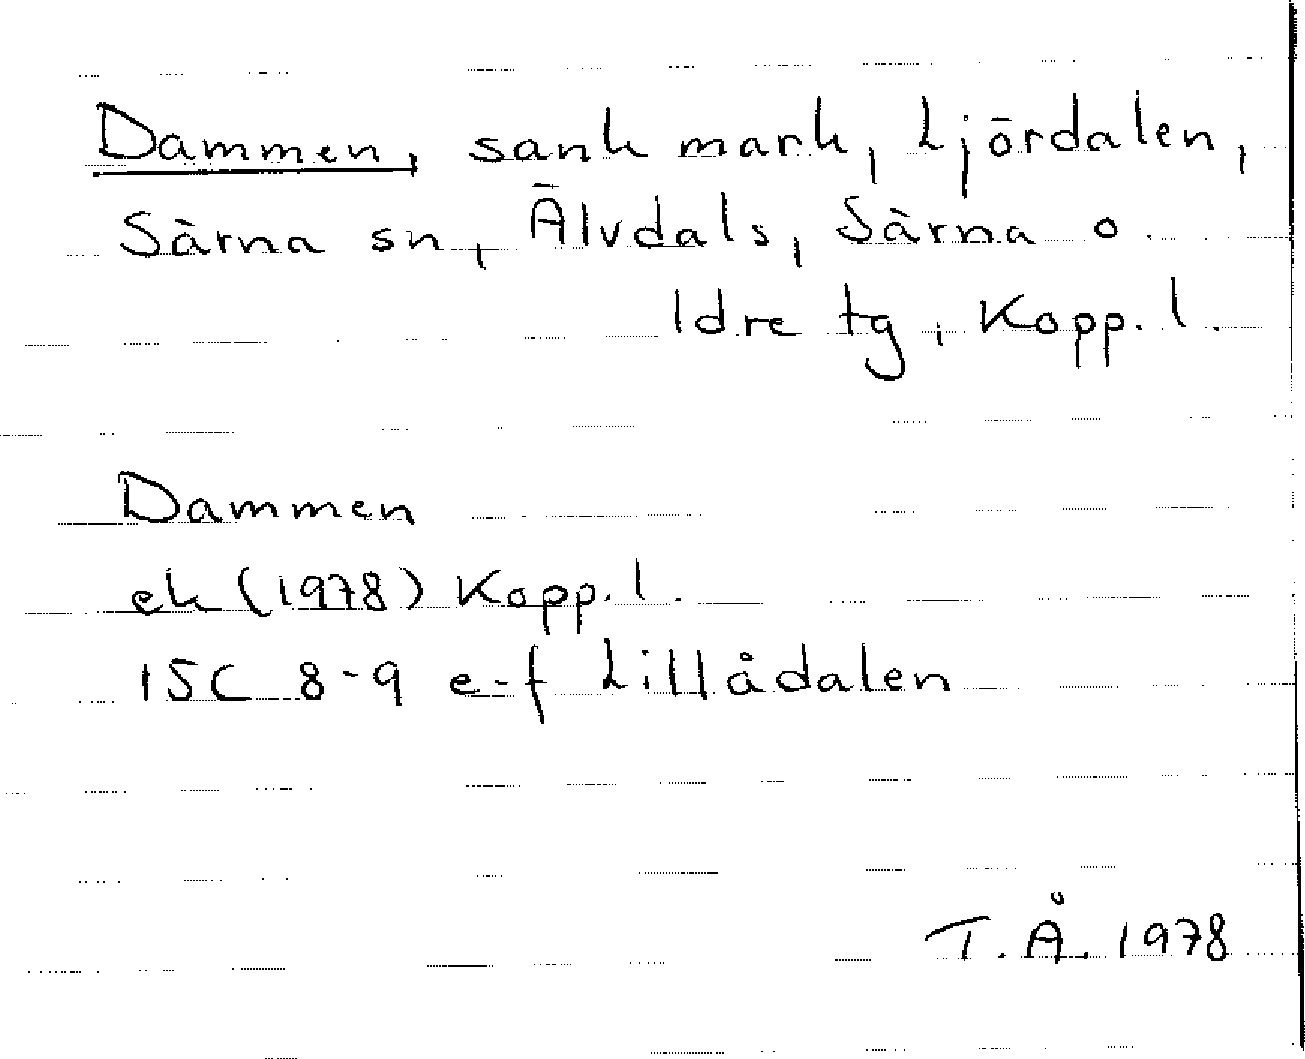 Dammen, sank mark, Ljördalen,
Särna sn, Älvdals, Särna o.
Idre tg, Kopp. l.
Dammen
ek (1978) Kopp. l.
15C 8-9 e-f Lillådalen
T. Å. 1978